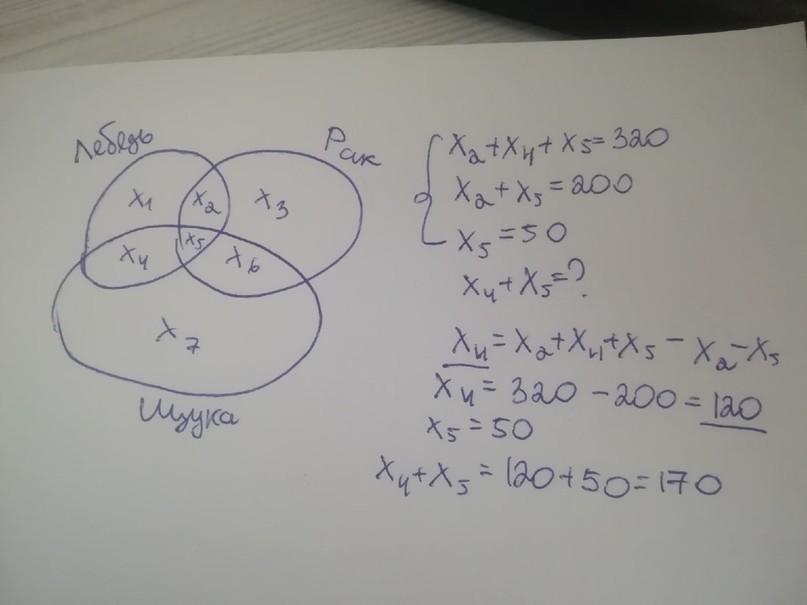 Лебедь
Рак
x1
x2
x3
x4
x5
x6
x7
Щука
x2+x4+x5=320
x2+x5=200
x5=50
x4+x5=?
x4=x2+x4+x5-x2-x5
x4=320-200=120
x5=50
x4+x5=120+50=170